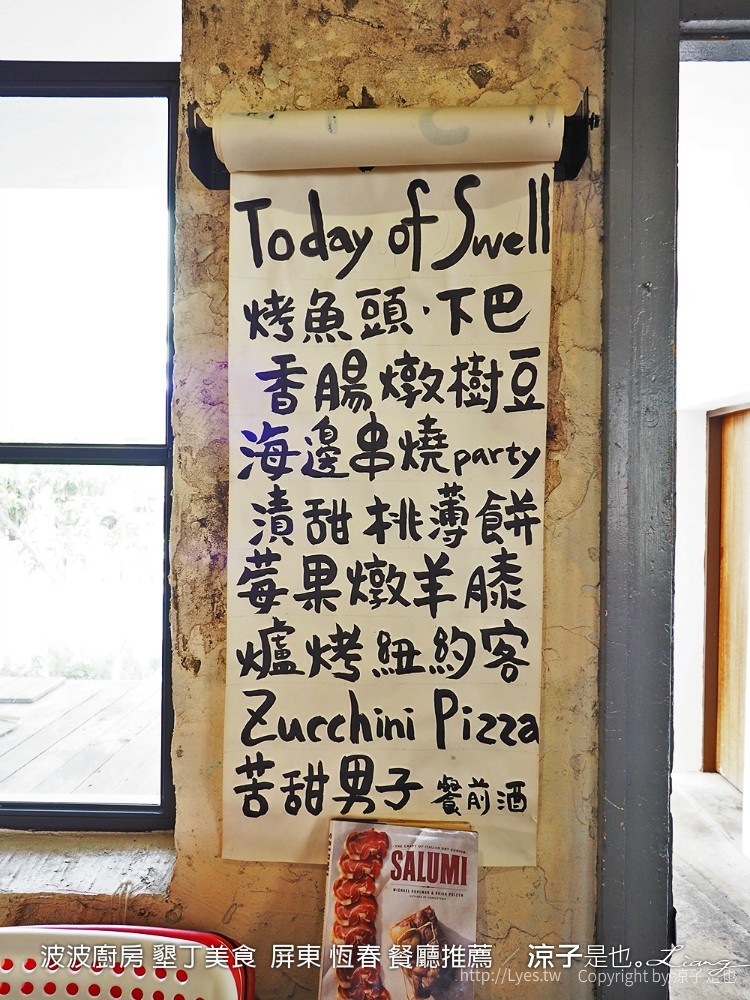 Today of Swell
烤魚頭·下巴
香腸燉樹豆
海邊串燒party
漬甜桃薄餅
莓果燉羊膝
爐烤紐約客
Zucchini Pizza
苦甜男子 餐前酒
THE CRAFT OF ITALIAN DRY CURING
SALUMI
MICHAEL RUHLMAN & BRIAN POLCYN
波波廚房 墾丁美食 屏東 恆春 餐廳推薦 / 涼子是也。Liang
http://Lyes.tw Copyright by 涼子是也